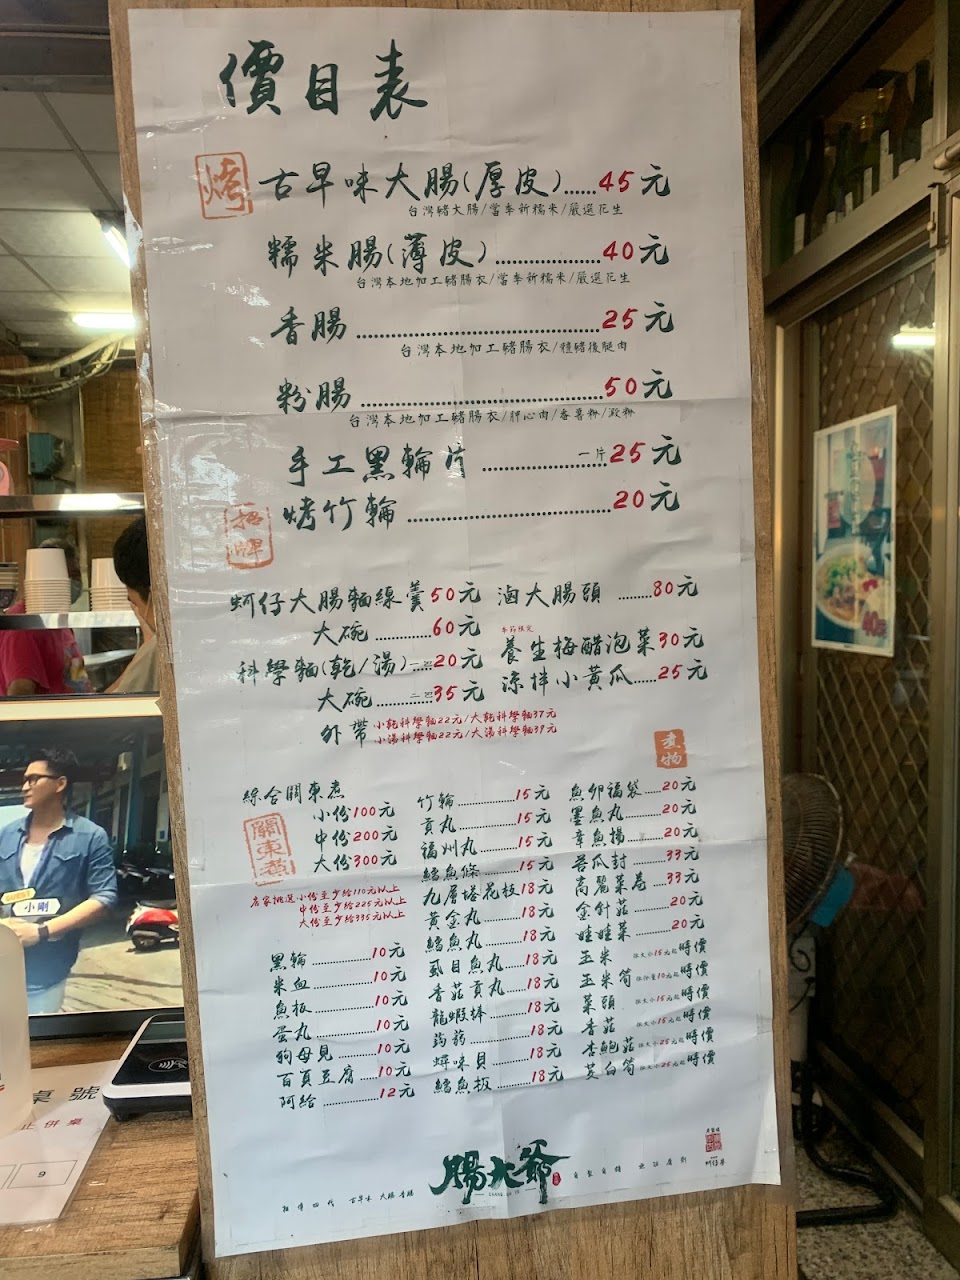 價目表
烤
古早味大腸(厚皮)......45元
台灣豬大腸/當季新糯米/嚴選花生
糯米腸(薄皮)..............40元
台灣本地加工豬腸衣/當季新糯米/嚴選花生
香腸..............................25元
台灣本地加工豬腸衣/豬後腿肉
粉腸..............................50元
台灣本地加工豬腸衣/胛心肉/番薯粉/澱粉
手工黑輪片................一片25元
招牌
烤竹輪.........................20元
蚵仔大腸麵線羹50元
大碗...........60元
科學麵(乾/湯)..一把20元
大碗.......二把35元
外帶
小乾科學麵22元/大乾科學麵37元
小湯科學麵22元/大湯科學麵39元
滷大腸頭.......80元
季節限定
養生梅醋泡菜30元
涼拌小黃瓜.....25元
煮物
綜合關東煮
關東煮
小份100元
中份200元
大份300元
店家挑選小份至少給110元以上
中份至少給225元以上
大份至少給335元以上
黑輪..............10元
米血..............10元
魚板..............10元
蛋丸..............10元
狗母見..........10元
百頁豆腐.....10元
阿給..............12元
竹輪..............15元
貢丸..............15元
福州丸..........15元
鱈魚條..........15元
九層塔花枝18元
黃金丸..........18元
鱈魚丸..........18元
虱目魚丸......18元
香菇貢丸......18元
龍蝦棒..........18元
蒟蒻..............18元
燒味貝..........18元
鱈魚板..........18元
魚卵福袋.....20元
墨魚丸..........20元
章魚揚..........20元
苦瓜封..........33元
高麗菜卷.....33元
金針菇..........20元
娃娃菜..........20元
玉米 依大小15元起時價
玉米筍 依份量10元起時價
菜頭 依大小15元起時價
香菇 依大小15元起時價
杏鮑菇 依大小25元起時價
茭白筍 依大小25元起時價
腸大爺
古早味 大腸 香腸
小剛
桌號
止併桌
9